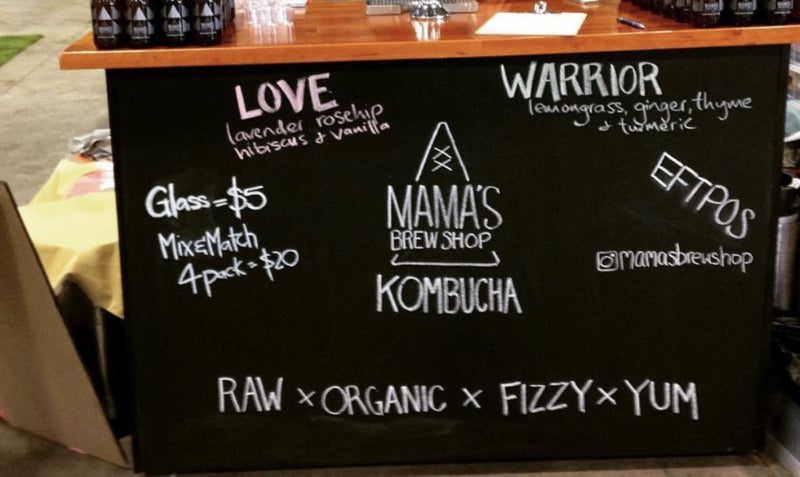 LOVE
lavender rosehip
hibiscus & vanilla
WARRIOR
lemongrass, ginger, thyme
& turmeric
Glass = $5
Mix & Match
4pack = $20
MAMA'S
BREW SHOP
KOMBUCHA
EFTPOS
mamasbrewshop
RAW x ORGANIC x FIZZY x YUM